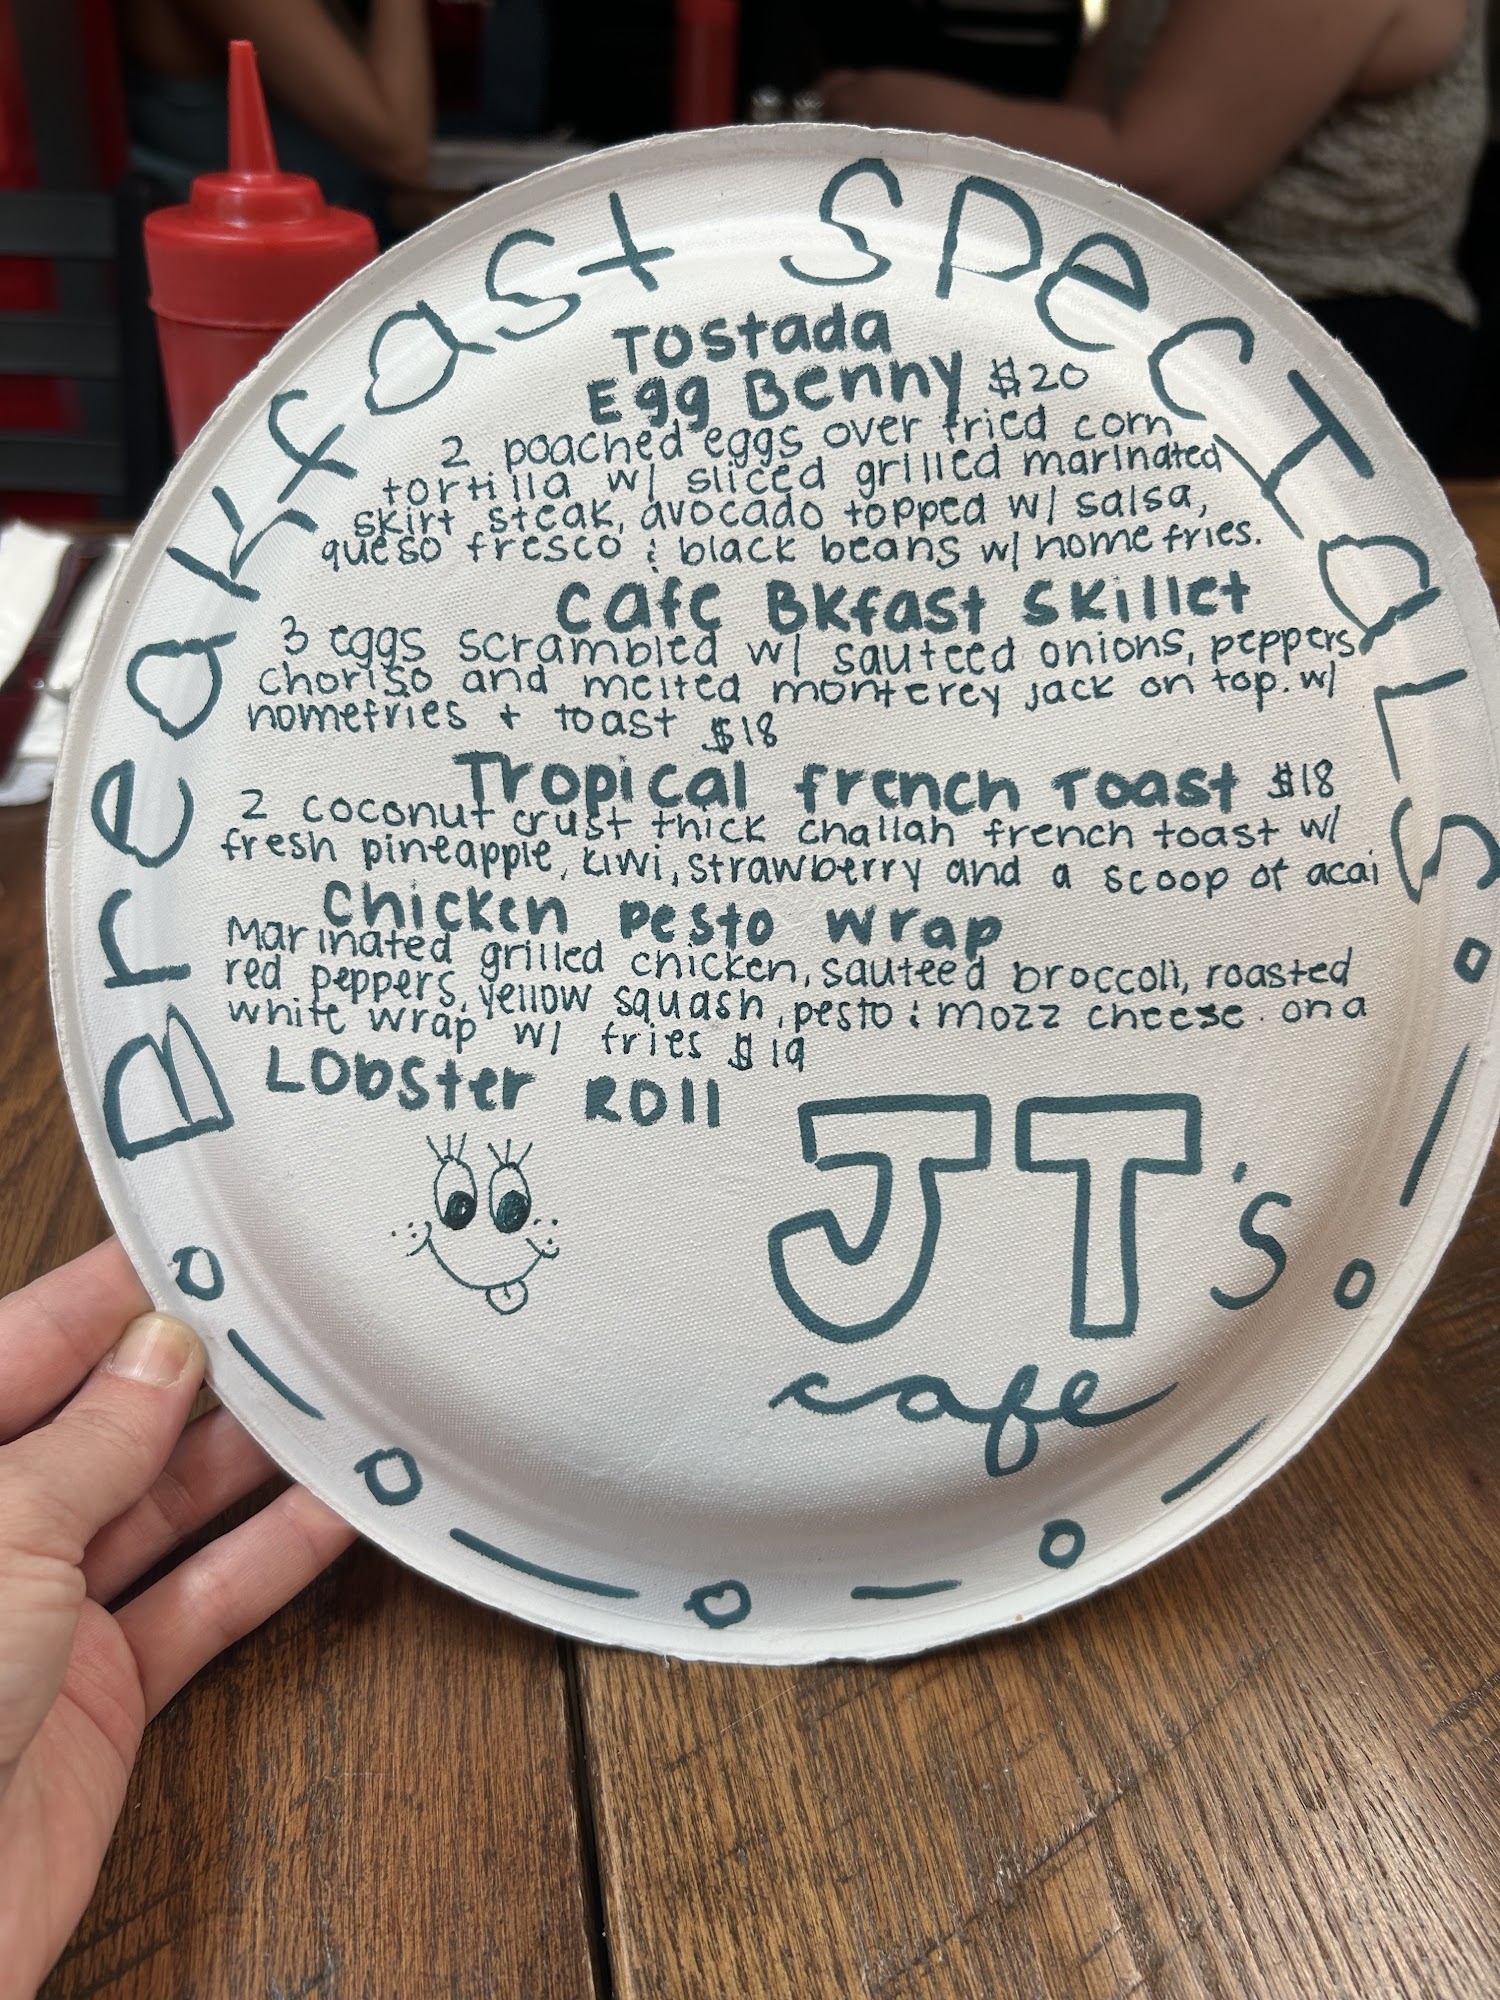 Breakfast Specials
Tostada
Egg Benny $20
2 poached eggs over fried corn
tortilla w/ sliced grilled marinated
skirt steak, avocado topped w/ salsa,
queso fresco & black beans w/ homefries.
Cafe Bkfast Skillet
3 eggs scrambled w/ sauteed onions, peppers
choriso and melted monterey jack on top. w/
homefries + toast $18
Tropical french Toast $18
2 coconut crust thick challah french toast w/
fresh pineapple, kiwi, strawberry and a scoop of acai
Chicken pesto wrap
Marinated grilled chicken, sauteed broccoli, roasted
red peppers, yellow squash, pesto & mozz cheese. on a
white wrap w/ fries $19
Lobster Roll
JT's
cafe